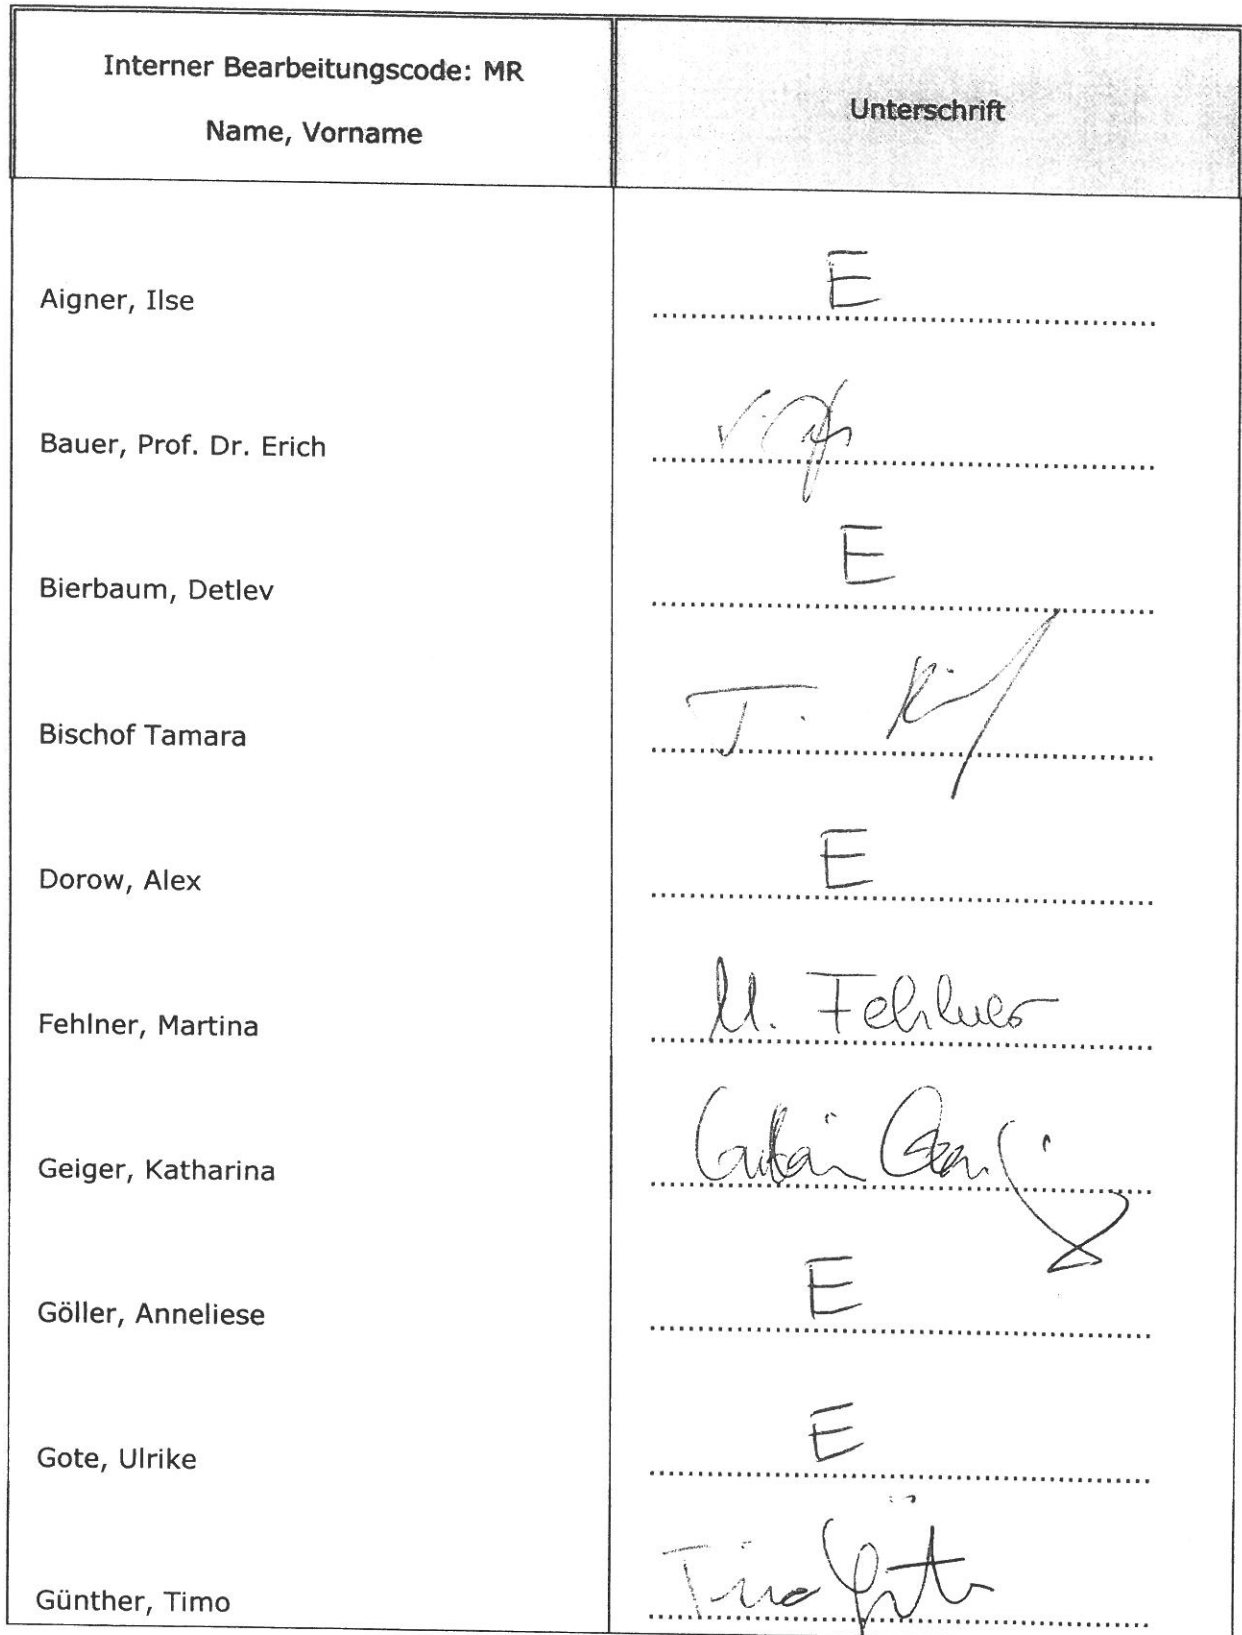 Interner Bearbeitungscode: MR
Name, Vorname
Unterschrift
Aigner, Ilse
E
Bauer, Prof. Dr. Erich
Bierbaum, Detlev
E
Bischof Tamara
T.
Dorow, Alex
E
Fehlner, Martina
M. Fehlner
Geiger, Katharina
Göller, Anneliese
E
Gote, Ulrike
E
Günther, Timo
Timo